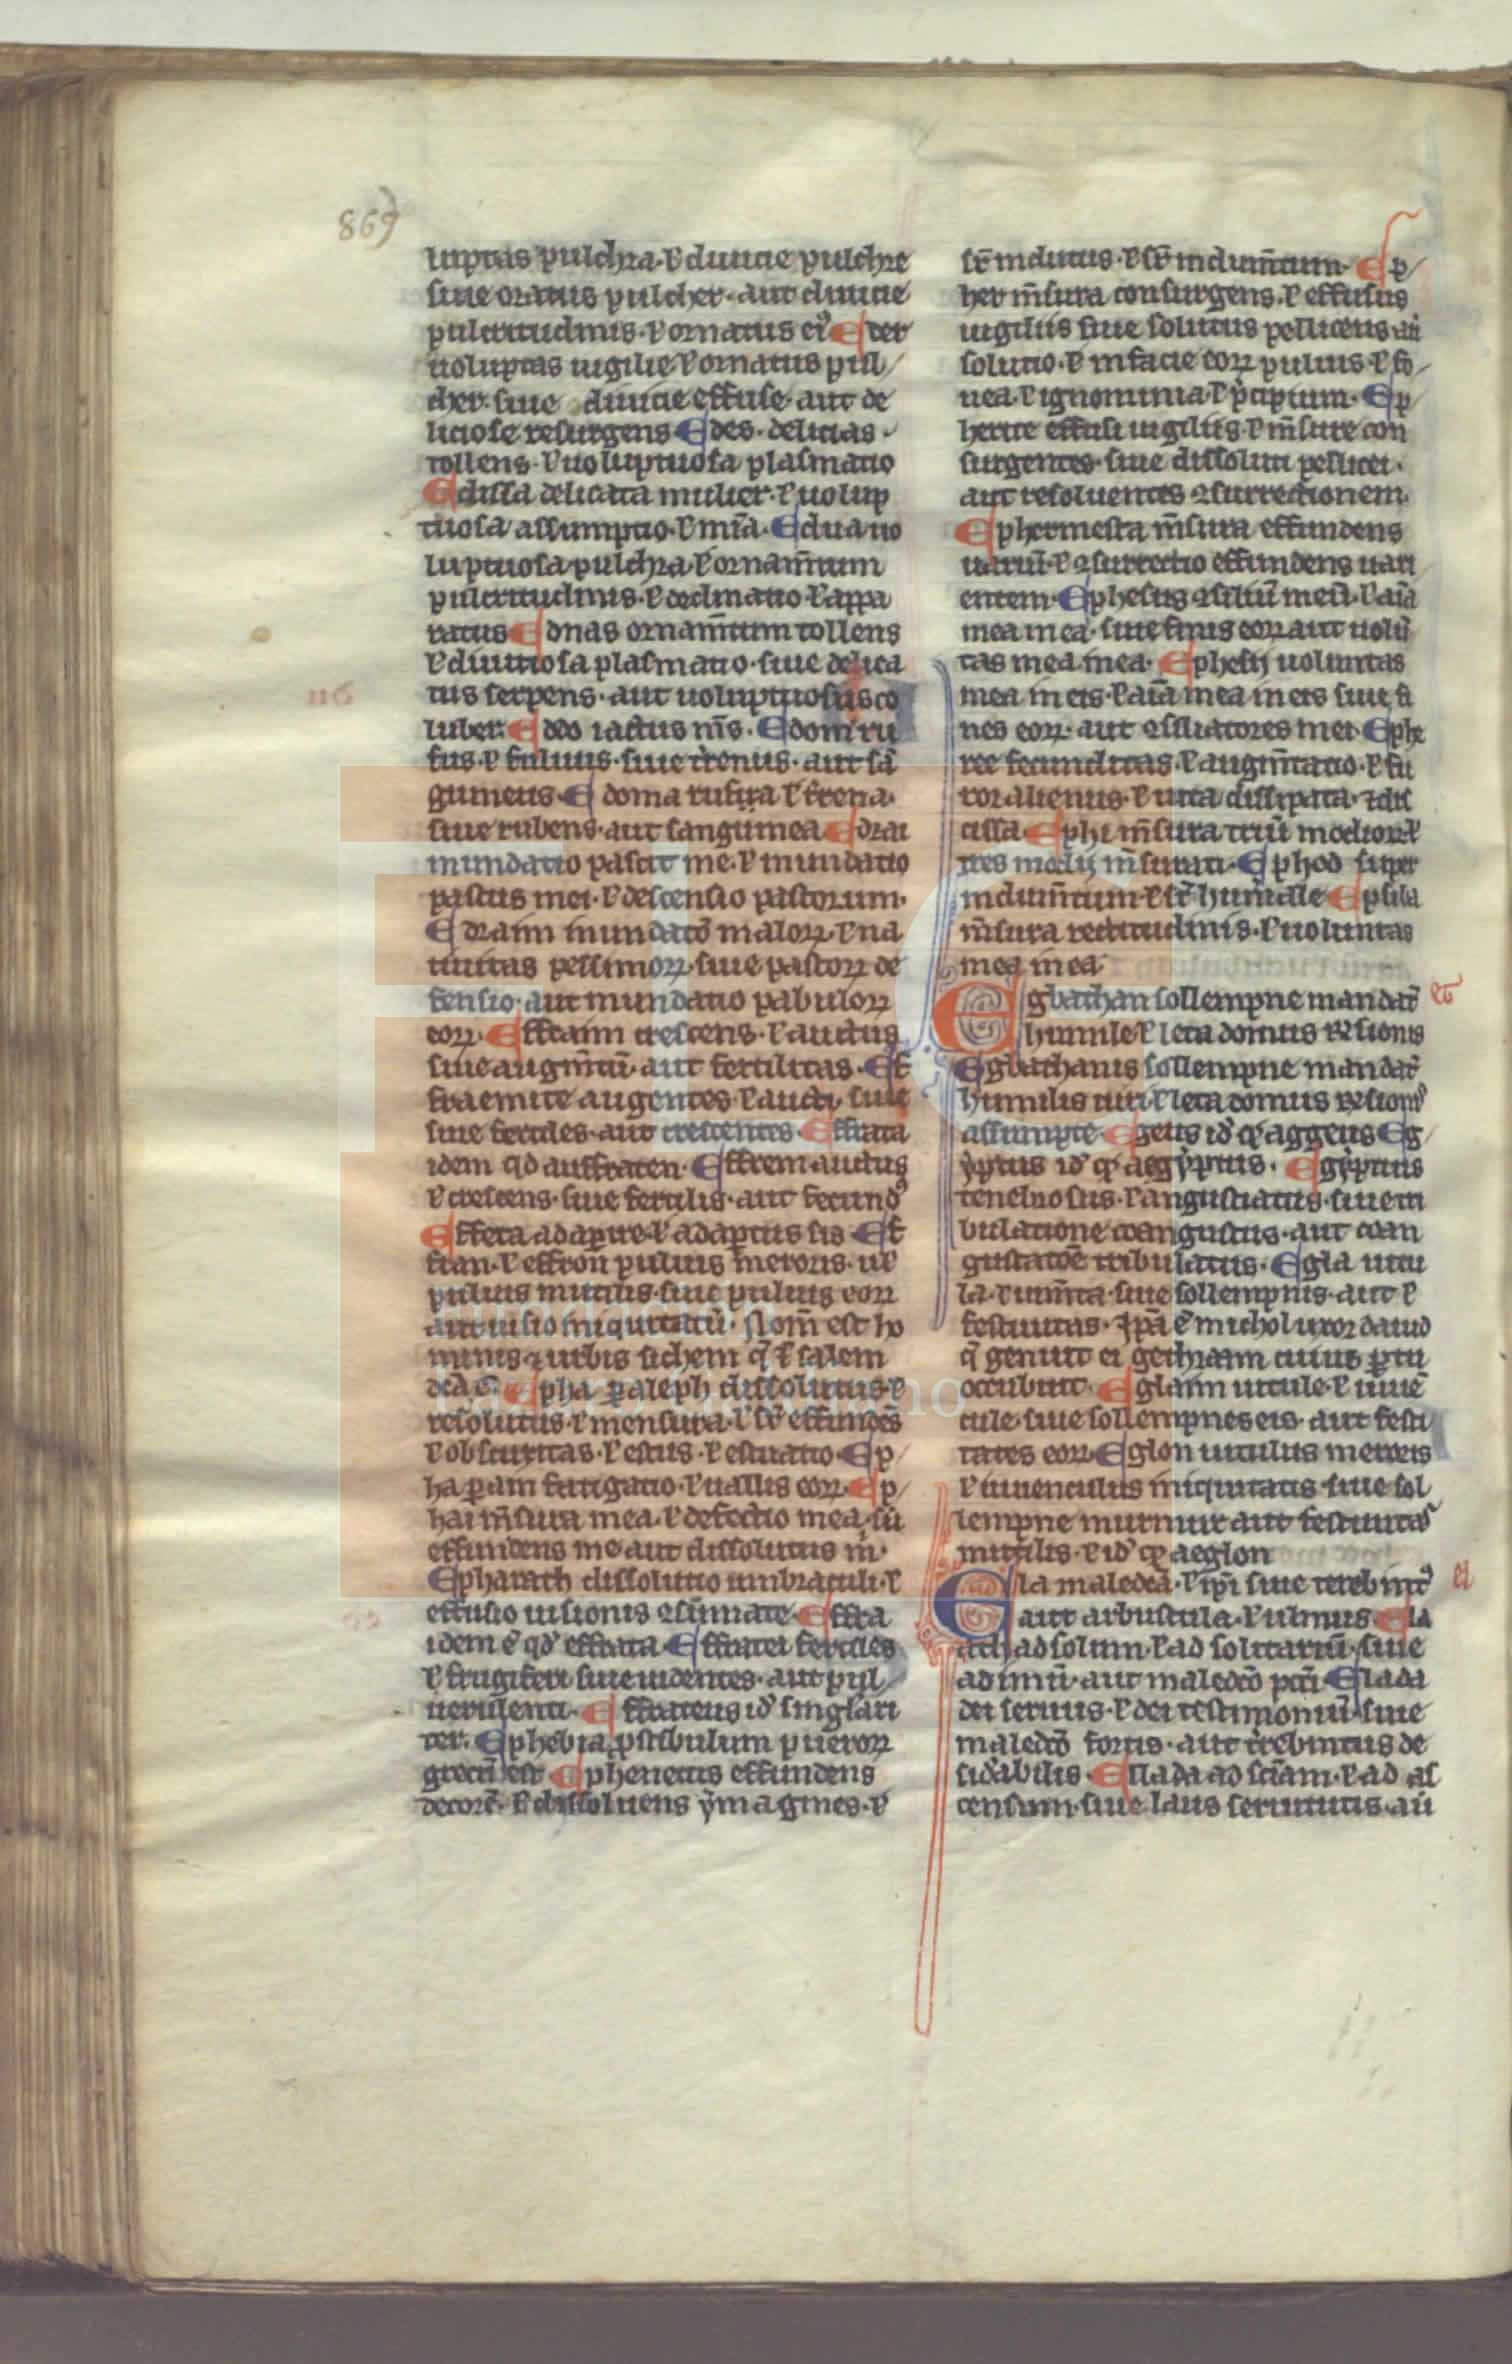 869
luptas pulchra · ł diuicie pulchre
siue oratus pulcher · aut diuicie
pulcritudinis · ł ornatus eiꝰ Eder
uoluptas uigilie ł ornatus pul/
cher · siue diuicie effuse · aut de
liciose resurgens Edes · delicias ·
tollens · ł uoluptuosa plasmatio
Edissa delicata mulier · ł uolup
tuosa assumptio · ł mīa · Edua uo
luptuosa · pulchra · ł ornam̄tum
pulcritudinis · ł declinatio ł appa
ratus Ednas ornam̄tum tollens
ł diuitiosa plasmatio · siue delica
tus serpens · aut uoluptuosus co
luber · Eddo iactus nīs · Edom ru
fus · ł fuluus · siue tr̄enus · aut sā
guineus · Edoma rufa ł tr̄ena ·
siue rubens · aut sanguinea Edrai
inundatio pascit me · ł inundatio
pastus mei · ł descensio pastorum ·
Edraim inundatō maloꝝ · ł na
tiuitas pessimoꝝ · siue pastoꝝ de
fensio · aut inundatio pabuloꝝ
eoꝝ · Effraim crescens · ł auctus
siue augm̄tū · aut fertilitas · Ef
fraemite augentes ł aucti · siue
siue fertiles · aut crescentes · Effrata
idem qd auffraten · Effrem · auctus
ł crescens · siue fertilis · aut fecundꝰ
Effeta adaperire · ł adapertus sis · Ef
fran · ł effron puluis meroris · ul'
puluis inutilis · siue puluis eoꝝ
aut uisio iniquitatū · Nom̄ est ho
minis ⁊ urbis sichem q̄ ł salem
dcā ē · Epha ꝑ aleph dissolutus · ł
resolutus · ł mensura · ł sr̄ effundēs
ł obscuritas · ł estus · ł estuatio Ep/
ha ꝑ am fatigatio · ł uallis eoꝝ · Ep/
hai m̄sura mea · ł defectio mea · siū
effundens me aut dissolutus m̄ ·
Epharath dissolutio umbraculi · ł
effusio uisionis ꝯsūmate · Effra
idem ē qd' effrata Effratei fertiles
ł frugiferi siue uidentes · aut pul
uerulenti · Effrateus id' singlari
ter · Ephebia ꝓstibulum pueroꝝ
grecū est Ephenetus effundens
decorē · ł dissoluens ymagines · ł
sr̄ indutus · ł sr̄ indum̄tum · Ep/
her m̄sura consurgens · ł effusus
uigiliis siue solutus pelliceus aū
solutio · ł in facie eoꝝ puluis · ł fo/
uea · ł ignominia · ł p̄cipium · Ep
herite effusi uigiliis · ł m̄sure con
surgentes · siue dissoluti pellicei ·
aut resoluentes ꝯsurrectionem
Ephermesta m̄sura effundens
uariū · ł ꝯsurrectio effundens uari
entem · Ephesus ꝯsiliū meū · ł aīa
mea mea · siue finis eoꝝ aut uolū
tas mea mea · Ephesij uoluntas
mea in eis · ł aīa mea in eis siue fi
nes eoꝝ · aut ꝯsiliatores mei · Ephe
ree fecunditas · ł augm̄tatio · ł fu
ror alienus · ł uita dissipata ·
Ephi m̄sura triū modioꝝ · ł
tres modij m̄surati · Ephod super
indum̄tum · ł sr̄ hum̄ale Epsila
m̄sura rectitudinis · ł uoluntas
mea in ea ·
eg
Egbathan sollempne mandat̄
humile ł leta domus ꝯsionis
Egbathanis sollempne mandat̄
humilis uiri · ł leta domus
assumpte · Egeus id' qd' aggeus Eg/
yptus id' qd' aegyptus · Egyptus
tenebrosus · ł angustiatus · siue in
bulatione coangustus · aut coan
gustatōe tribulatus · Egla uitu
la · ł iuuēca · siue sollempnis · aut ł
festiuitas · Ipā ē michol uxor dauid
q̄ genuit ei gethraam cuius ꝑtu
occubuit · Eglaim uitule · ł iuuē
cule · siue sollempnes eis · aut festi
tates eoꝝ · Eglon uitulus meroris
ł iuuenculus iniquitatis siue sol
lempne murmur aut festiuitas
inutilis · ł id' qd' aeglon
el
Ela maledcā · ł ipi siue terebintꝰ
aut arbustula · ł ulmus Ela
ath ad solum · ł ad solitariū · siue
ad imū · aut maledcō pcti Elada
dei seruus · ł dei testimoniū · siue
maledcō fortis · aut terebintus de
siderabilis · Ellada ad sciam · ł ad as
censum · siue laus seruitutis · aū